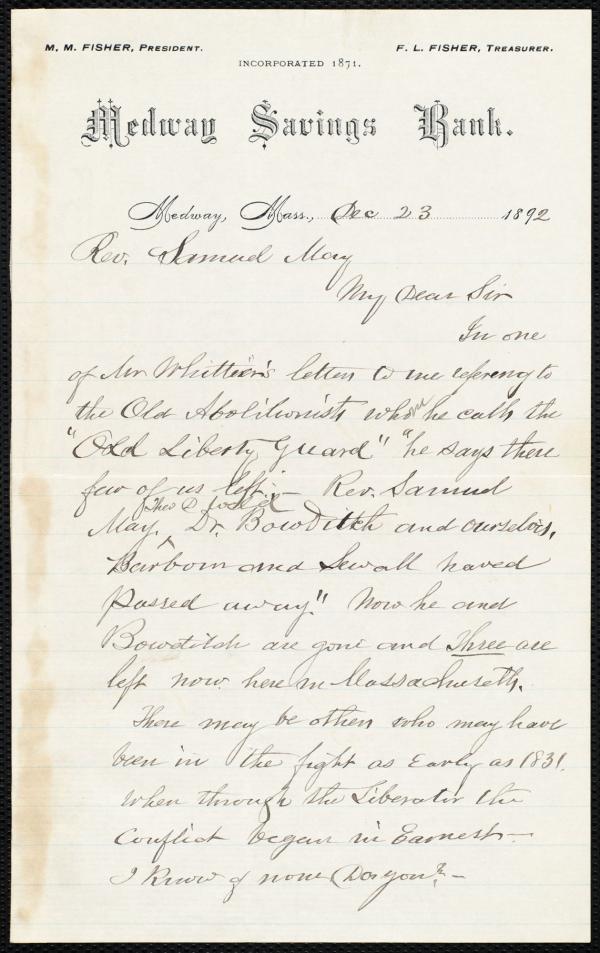 M. M. FISHER, PRESIDENT. F. L. FISHER, TREASURER.
INCORPORATED 1871.
Medway Savings Bank.
Medway, Mass., Dec 23 1892
Rev. Samuel May
My Dear Sir
In one
of Mr Whittier's letters to me refering to
the Old Abolitionists whom he calls the
"Old Liberty Guard" "he says there
few of us left; — Rev. Samuel
Theo D Weld
May. Dr. Bowditch and ourselves,
Barbour and Sewall haved
passed away." Now he and
Bowditch are gone and Three are
left now here in Massachusetts.
There may be others who may have
been in the fight as Early as 1831.
when through the Liberator the
Conflict began in Earnest —
I know of none (Do you? —